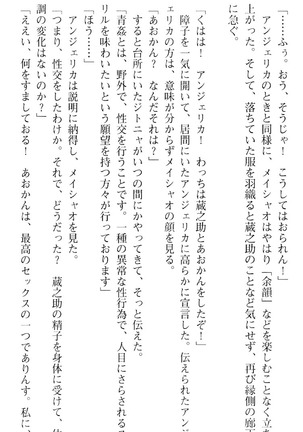 「……ふぅ。おう、そうじゃ！　こうしてはおられん！」
　アンジェリカのときと同様に、メイシャオはやはり「余韻」などを楽しむことなく立ち
上がった。そして、落ちていた服を羽織ると蔵之助のことなど気にせず、再び縁側の廊下
に急ぐ。
「くはは！　アンジェリカ！　わっちは蔵之助とあおかんをしたぞ！」
　障子を一気に開いて、居間にいたアンジェリカに高らかに宣言した。伝えられたアンジ
ェリカの方は、意味が分からずメイシャオの顔を見る。
「あおかん？　なんだそれは？」
　すると台所にいたジトニャがいつの間にかやってきて、そっと伝えた。
「青姦とは、野外で、性交を行うことです。一種の異常な性行為で、人目にさらされるス
リルを味わいたいという願望を持つ方々が行っております」
「ほう……」
　アンジェリカは説明に納得し、メイシャオを見た。
「つまり、性交をしたわけか。それで、どうだった？　蔵之助の精子を身体に受けて、体
調の変化はないのか？」
「ええい、何をすましておる！　あおかんは、最高のセックスの一つでありんす。私に、